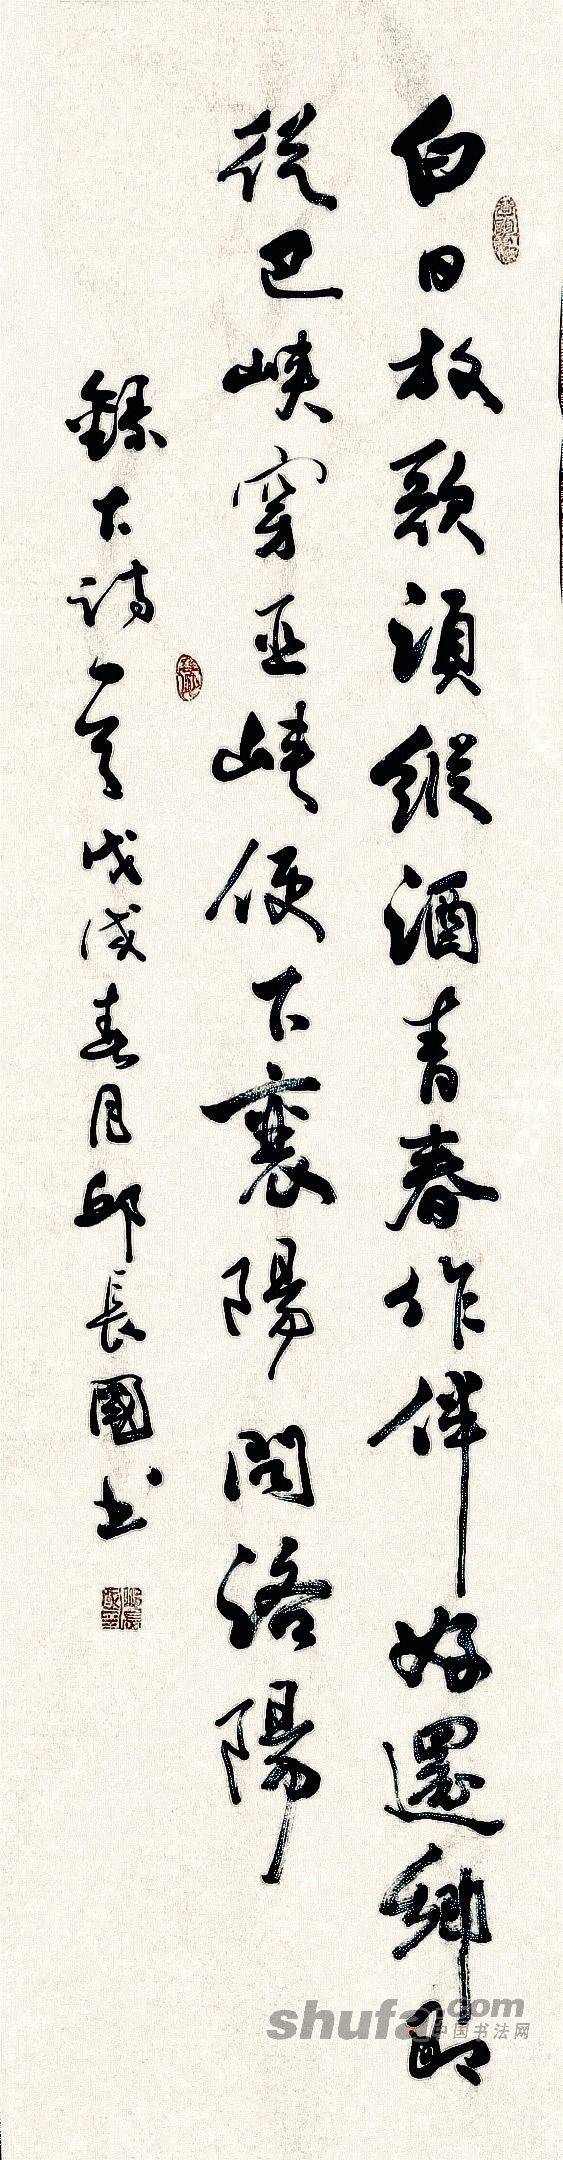 白日放歌須縱酒青春作伴好還鄉即
從巴峽穿巫峽便下襄陽向洛陽
錄古詩一首戊戌春月邱長國書
shufa.com
中国书法网